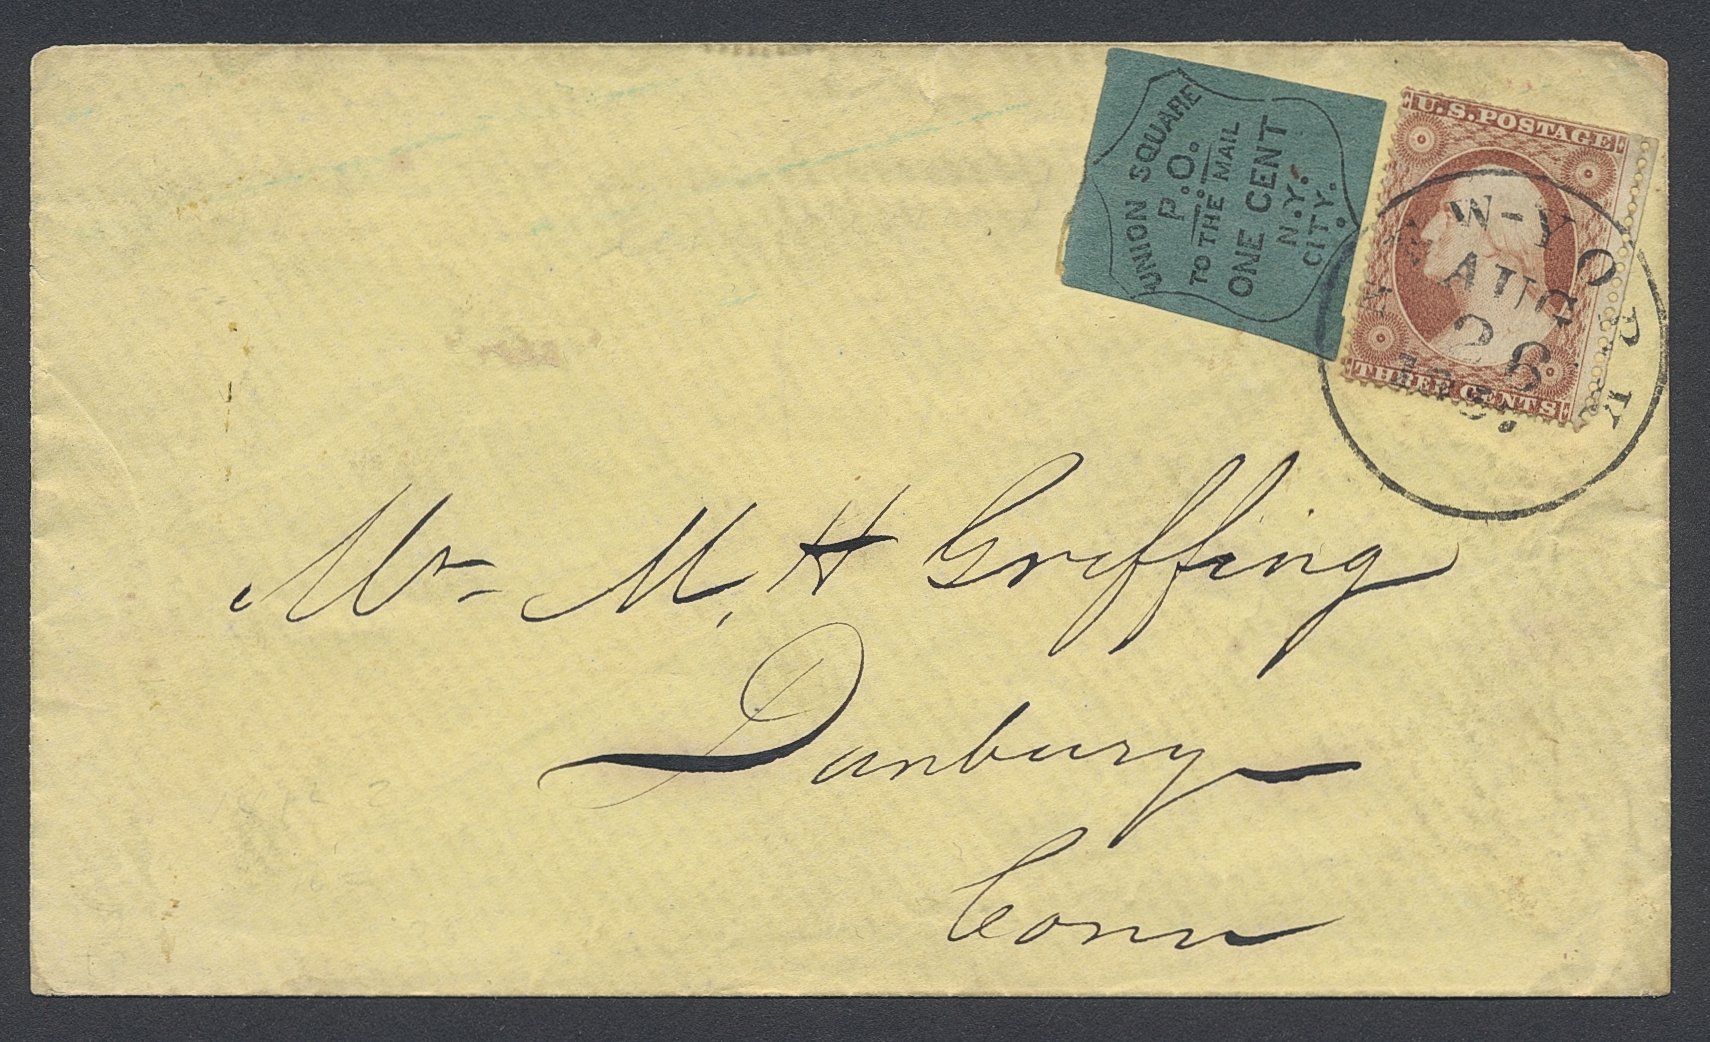 UNION SQUARE
P.O.
TO THE MAIL
ONE CENT
N.Y.
CITY.
U.S. POSTAGE
THREE CENTS
AUG
28
Mr M. H Griffing
Danbury
Conn